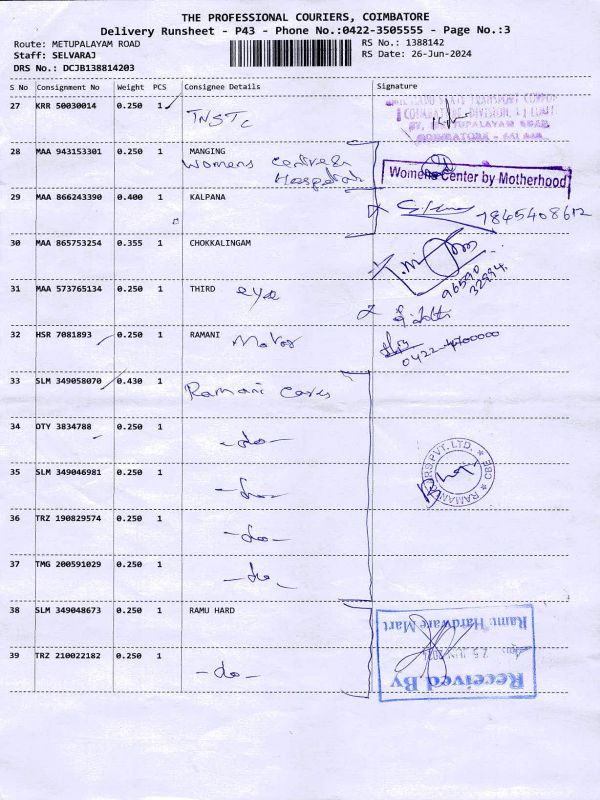 THE PROFESSIONAL COURIERS, COIMBATORE
Delivery Runsheet - P43 - Phone No.:0422-3505555 - Page No.:3
Route: METUPALAYAM ROAD RS No.: 1388142
Staff: SELVARAJ RS Date: 26-Jun-2024
DRS No.: DCJB138814203
S No Consignment No Weight PCS Consignee Details Signature
27 KRR 50030014 0.250 1 TNSTC
28 MAA 943153301 0.250 1 MANGING
Womens Centre &
Hospital
Womens Center by Motherhood
29 MAA 866243390 0.400 1 KALPANA
7845408612
30 MAA 865753254 0.355 1 CHOKKALINGAM
96590
32894
31 MAA 573765134 0.250 1 THIRD eye
32 HSR 7081893 0.250 1 RAMANI Motor
33 SLM 349058070 0.430 1 Ramani Cares
34 OTY 3834788 0.250 1 -do-
35 SLM 349046981 0.250 1 -do-
36 TRZ 190829574 0.250 1 -do-
37 TMG 200591029 0.250 1 -do-
38 SLM 349048673 0.250 1 RAMU HARD
Ramu Hardware Mart
39 TRZ 210022182 0.250 1 -do-
Received By